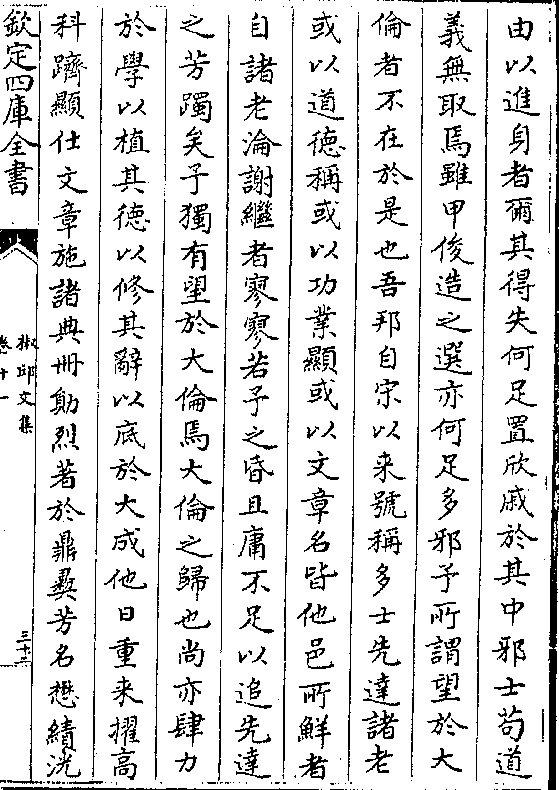 由以進身者爾其得失何足置欣戚於其中邪士苟道
義無取焉雖甲俊造之選亦何足多邪予所謂望於大
倫者不在於是也吾邦自宋以来號稱多士先達諸老
或以道德稱或以功業顯或以文章名皆他邑所鮮者
自諸老淪謝繼者寥寥若予之昏且庸不足以追先達
之芳躅矣予獨有望於大倫焉大倫之歸也尚亦肆力
於學以植其德以修其辭以底於大成他日重来擢高
科躋顯仕文章施諸典冊勛烈著於鼎彞芳名懋績洸
欽定四庫全書
椒邱文集
卷十一
三十三